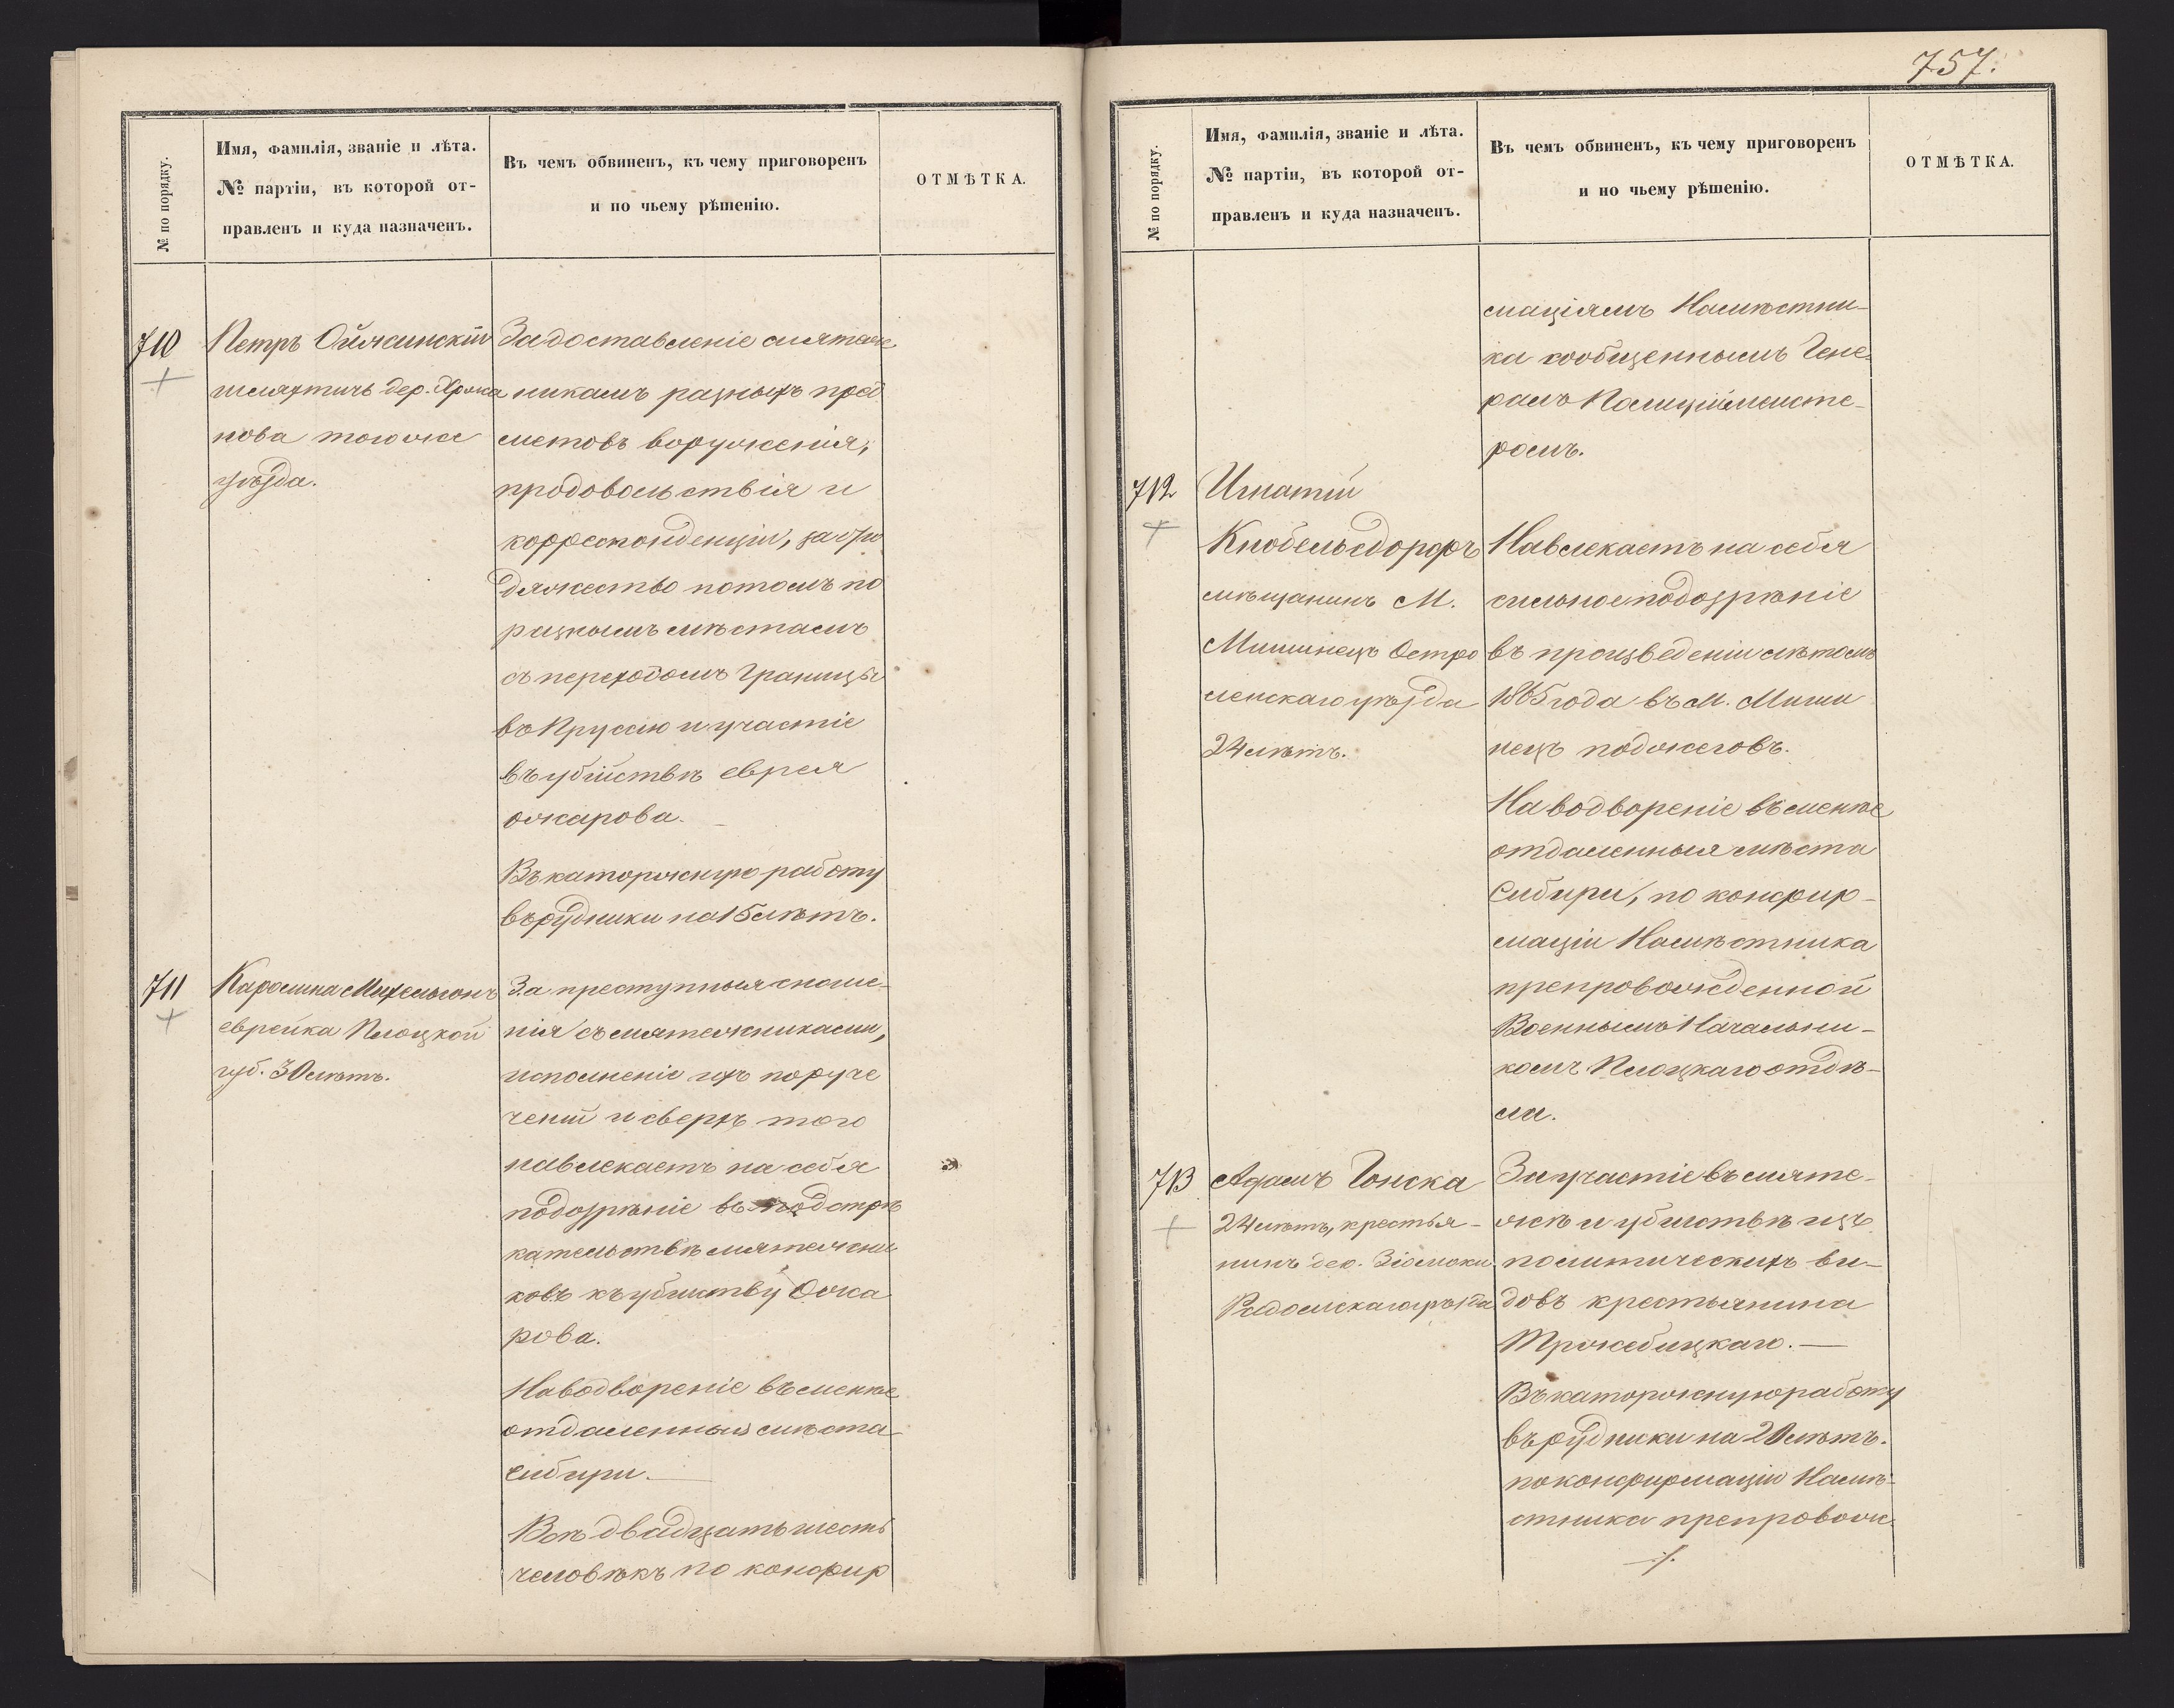 № по порядку.
Имя, фамилія, званіе и лѣта.
№ партіи, въ которой от-
правленъ и куда назначенъ.
Въ чемъ обвиненъ, къ чему приговоренъ
и по чьему рѣшенію.
ОТМѢТКА.
710
Петръ
шляхтичъ дер.
нова того же
уѣзда.
За доставленіе мятеж
никамъ разныхъ пред
метовъ вооруженія,
продовольствія и
корреспонденціи, за бро
дяжество потомъ по
разнымъ мѣстамъ
съ переходомъ границы
въ Пруссію и участіе
въ убійствѣ еврея
Ожарова.
Въ каторжную работу
въ рудники на 15 лѣтъ.
711
Каролина Михельсонъ
еврейка Плоцкой
губ. 30 лѣтъ.
За преступныя сноше-
нія съ мятежниками,
исполненіе ихъ поруче
ченій и сверхъ того
навлекаетъ на себя
подозрѣніе въ подстрѣ
кательствѣ мятежни
ковъ къ убійству Ожа
рова.
На водвореніе въ менѣе
отдаленныя мѣста
Сибири.
Всѣ двадцать шесть
человѣкъ по конфир
757.
№ по порядку.
Имя, фамилія, званіе и лѣта.
№ партіи, въ которой от-
правленъ и куда назначенъ.
Въ чемъ обвиненъ, къ чему приговоренъ
и по чьему рѣшенію.
ОТМѢТКА.
маціямъ Намѣстни-
ка сообщеннымъ Гене-
ралъ Полиціймейсте-
ромъ.
712
Игнатій
Кнобельсдорфъ
мѣщанинъ М.
Мишинецъ Остро
ленскаго уѣзда
24 лѣтъ.
Навлекаетъ на себя
сильное подозрѣніе
въ произведеніи лѣтомъ
1865 года въ м. Миши
нецъ поджоговъ.
На водвореніе въ менѣе
отдаленныя мѣста
Сибири, по конфир-
маціи Намѣстника
препровожденной
Военнымъ Начальни-
комъ Плоцкаго отдѣ-
ла.
713
Адамъ Гонска
24 лѣтъ, крестья-
нинъ дер.
Радомскаго уѣзда
За участіе въ мяте-
жѣ и убійствѣ изъ
политическихъ ви-
довъ крестьянина
Тржебицкаго.
Въ каторжную работу
въ рудники на 20 лѣтъ.
по конфирмаціи Намѣ-
стника препровож.
./.